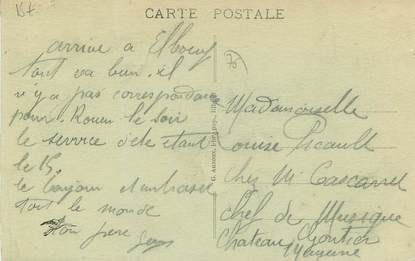 CARTE POSTALE
arrivé a Elbeuf
tout va bien. il
n'y a pas correspondance
pour Rouen le soir
le service d'été étant
le 15.
le bonjour et embrasse
tout le monde
ton frère
Mademoiselle
Louise Picault
chez Mr
Chef de Musique
Chateau Gontier
Mayenne